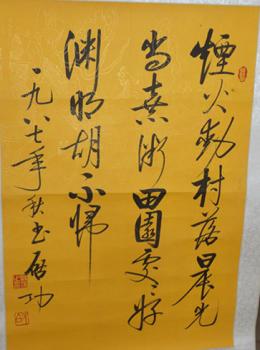 煙火動村落晨光
尚熹微田園處々好
淵明胡不歸
一九八七年秋書啟功